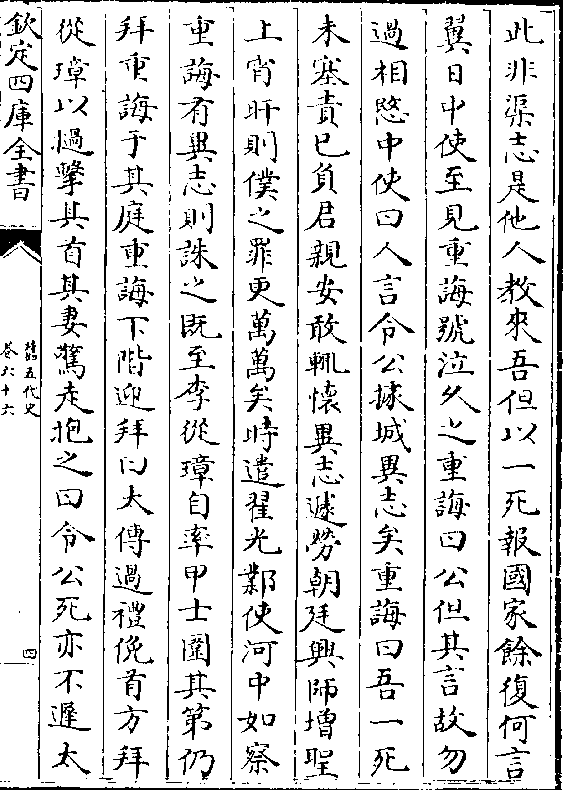 此非渠志是他人教來吾但以一死報國家餘復何言
翼日中使至見重誨號泣久之重誨曰公但其言故勿
過相愍中使曰人言令公據城異志矣重誨曰吾一死
未塞責已負君親安敢輒懷異志遽勞朝廷興師增聖
上宵旰則僕之罪更萬萬矣時遣翟光鄴使河中如察
重誨有異志則誅之既至李從璋自率甲士圍其第仍
拜重誨于其庭重誨下階迎拜曰太傅過禮俛首方拜
從璋以撾擊其首其妻驚走抱之曰令公死亦不遲太
欽定四庫全書
舊五代史
卷六十六
四